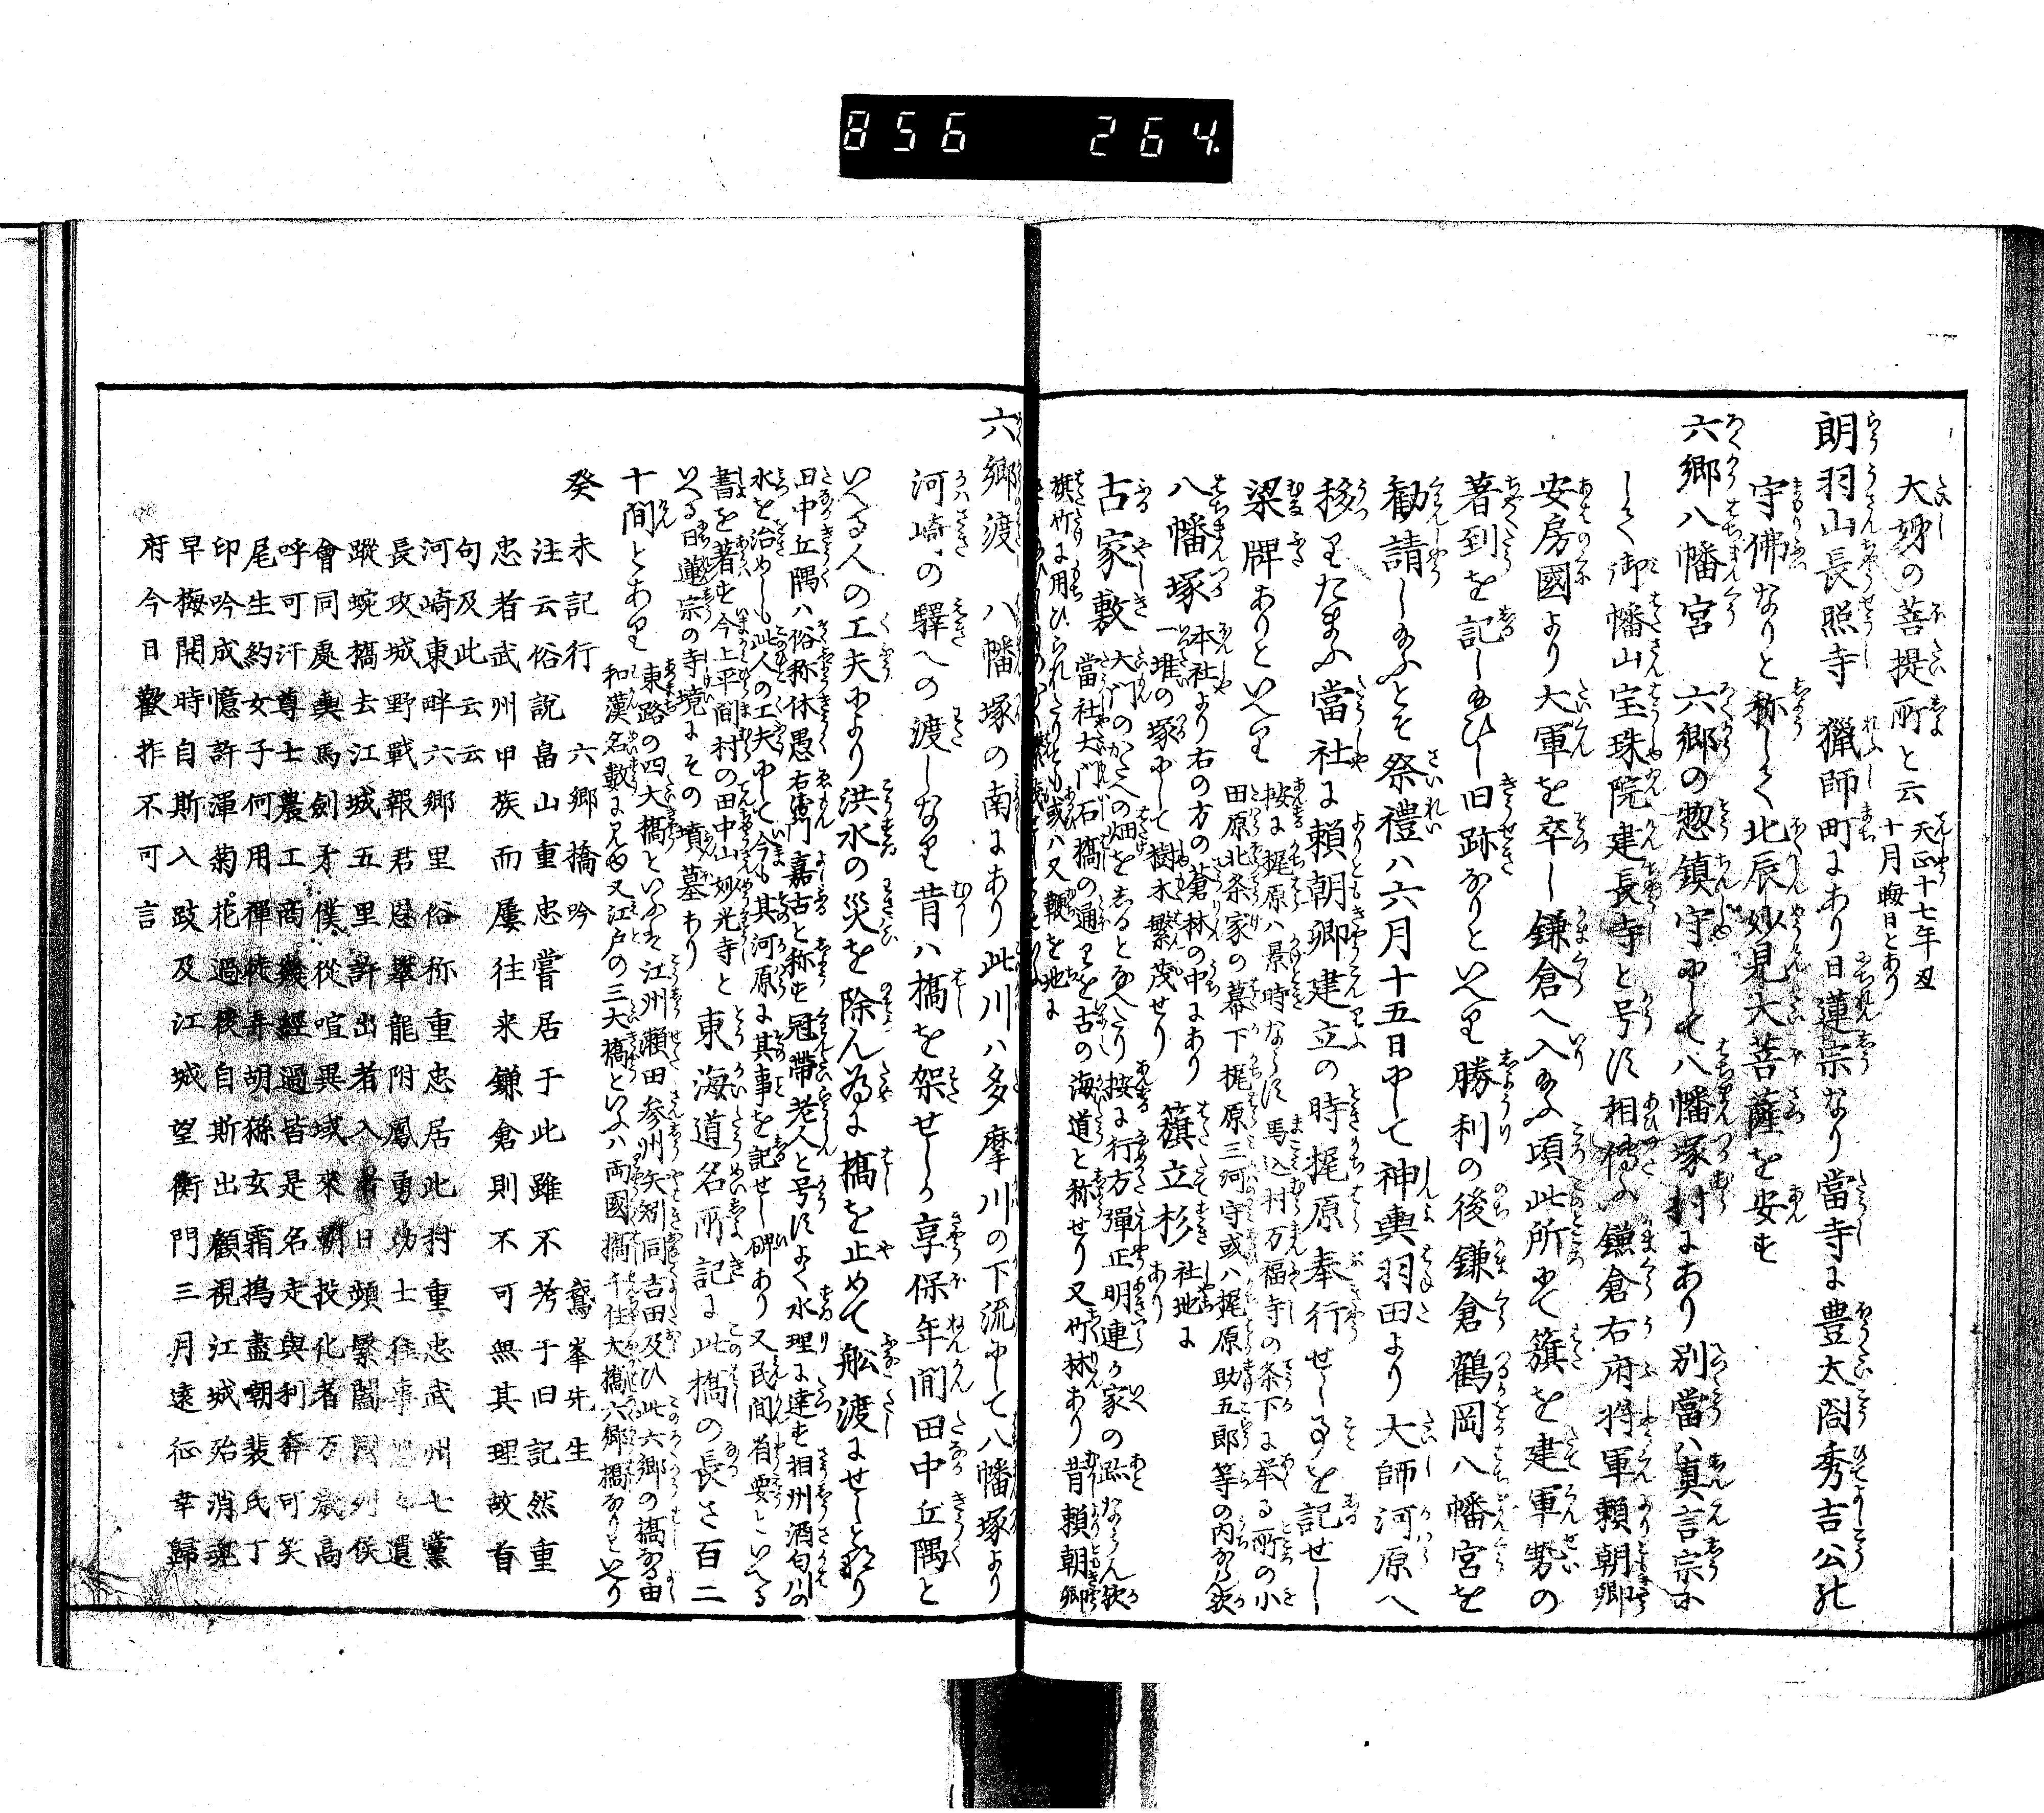 856 264.
大姉の菩提所と云 天正十七年丑
十月晦日とあり
朗羽山長照寺 猟師町にあり日蓮宗なり當寺に豊太閤秀吉公の
守佛なりと称して北辰妙見大菩薩を安す
六郷八幡宮 六郷の惣鎮守にして八幡塚村にあり別當ハ真言宗に
して御幡山宝珠院建長寺と号す相傳ふ鎌倉右府将軍頼朝卿
安房國より大軍を卒し鎌倉へ入給ふ頃此所にて籏を建軍勢の
著到を記し給ひし旧跡なりといへり勝利の後鎌倉鶴岡八幡宮を
勧請し給ふとそ祭禮ハ六月十五日にして神輿羽田より大師河原へ
移りたまふ當社に頼朝卿建立の時梶原奉行せし事を記せし
梁牌ありといへり 按に梶原ハ景時ならす馬込村万福寺の条下に挙る所の小
田原北条家の幕下梶原三河守或ハ梶原助五郎等の内なる歟
八幡塚 本社より右の方の蒼林の中にあり
一堆の塚にして樹木繁茂せり 籏立杉 社地に
あり
古家敷 大門のかたへの畑をしるとなへたり按に行方彈正明連か家の趾ならん歟
當社大門石橋の通りを古の海道と称せり又竹林あり昔頼朝卿
旗竹に用ひられたりとも或ハ又鞭を地に
六郷渡 八幡塚の南にあり此川ハ多摩川の下流にして八幡塚より
河崎の驛への渡しなり昔ハ橋を架せしか享保年間田中丘隅と
いへる人の工夫により洪水の災を除ん為に橋を止めて舩渡にせしとなり
田中丘隅ハ俗称休愚右衛門嘉古と称す冠帶老人と号すよく水理に達す相州酒匂川の
水を治めしも此人の工夫にして今も其河原に其事を記せし碑あり又民間省要といへる
書を著す今上平間村の田中山妙光寺と
いへる日蓮宗の寺境にその墳墓あり 東海道名所記に此橋の長さ百二
十間とあり 東路の四大橋といふハ江州瀬田参州矢矧同吉田及ひ此六郷の橋なる由
和漢名數に見ゆ又江戸の三大橋といふハ両國橋千住大橋六郷橋なりといへり
癸未記行 六郷橋吟 鵞峯先生
注云俗説畠山重忠嘗居于此雖不考于旧記然重
忠者武州甲族而屢往来鎌倉則不可無其理故首
句及此云云
河崎東畔六郷里俗称重忠居此村重忠武州七黨
長攻城野戰報君恩攀龍附鳳勇功士往事 遺
蹤蜿橋去江城五里許出者入者日頻繁 列侯
會同處輿馬劍矛僕從喧異域來朝投化者万 高
呼可汗尊士農工商幾經過皆是名走與利奔可笑
尾生約女子何用禪徒弄胡猻玄霜搗盡朝裴氏丁
印吟成憶許渾菊花過後自斯出顧視江城殆消魂
早梅開時自斯入跂及江城望衡門三月遠征幸歸
府今日歡抃不可言